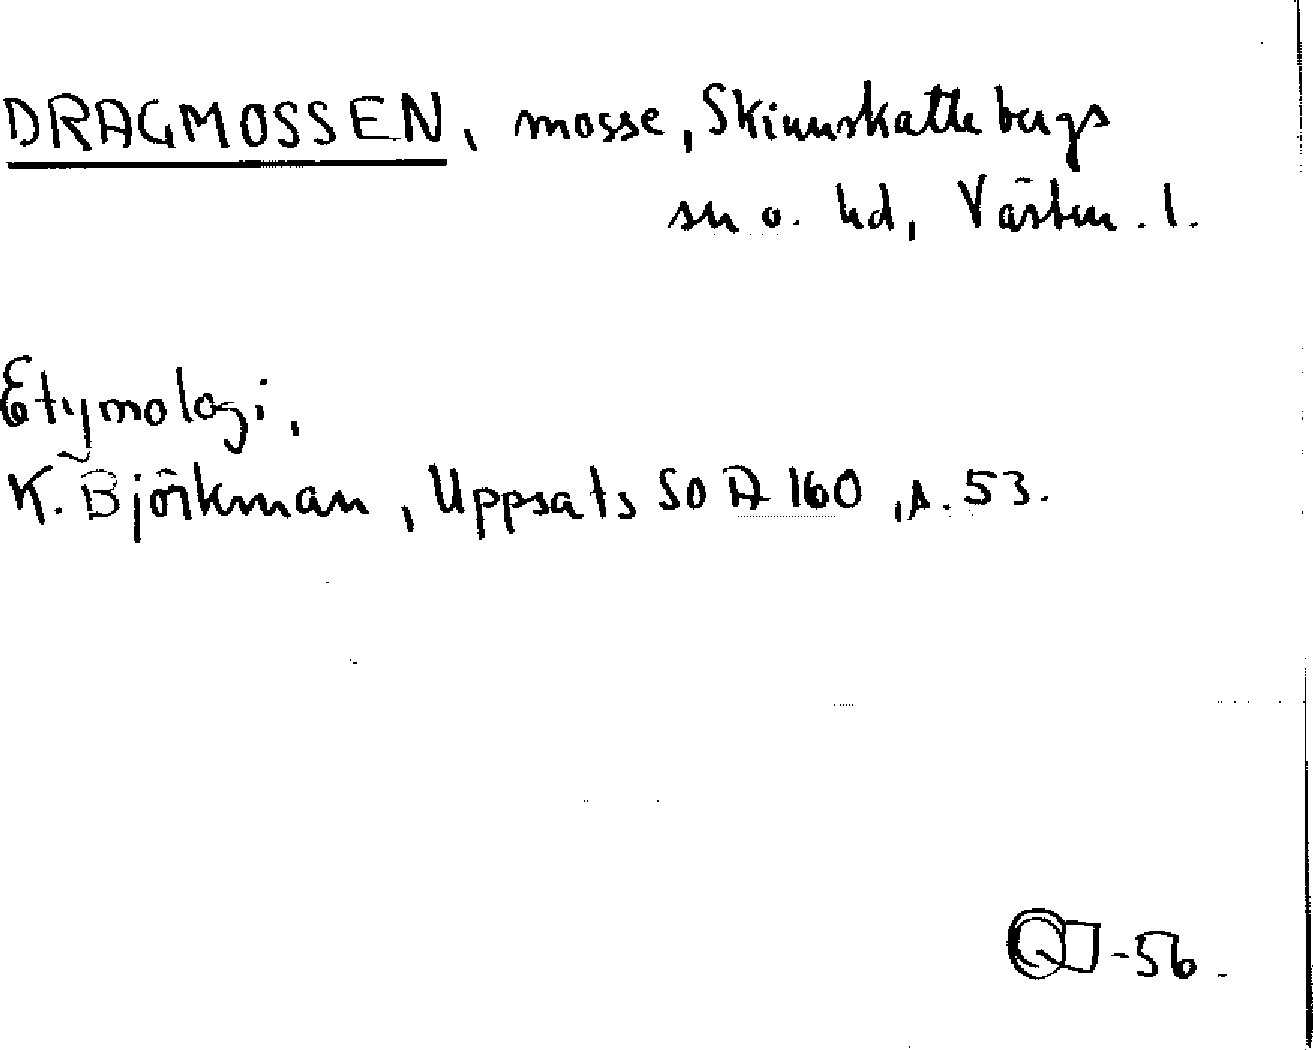 DRAGMOSSEN, mosse, Skinnskattebergs
sn o. hd, Västm. l.
Etymologi,
K. Björkman, Uppsats SOA 160, s. 53.
-56.